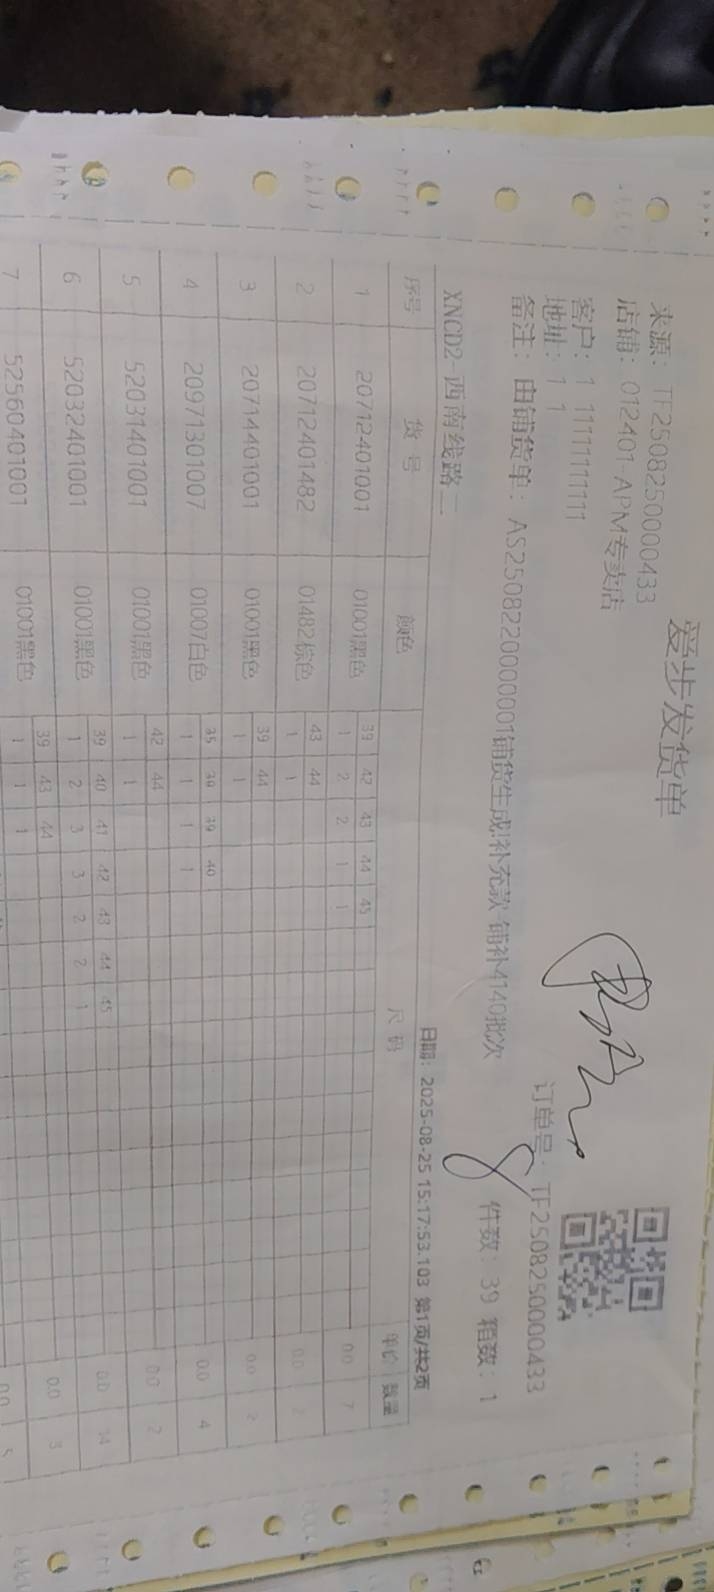 爱步发货单
来源：TF2508250000433
店铺：012401-APM专卖店
客户：1 11111111111
地址：1 1
订单号：TF2508250000433
备注：由铺货单：AS2508220000001铺货生成!补充款-铺补4140批次
件数：39 箱数：1
XNCD2-西南线路二
日期：2025-08-25 15:17:53.103 第1页/共2页
序号 货号 颜色 尺码 单价 数量
39 42 43 44 45
1 20712401001 01001黑色 1 2 2 1 1 0.0 7
43 44
2 20712401482 01482棕色 1 1 0.0 2
39 44
3 20714401001 01001黑色 1 1 0.0 2
35 39 40
4 20971301007 01007白色 1 1 1 1 0.0 4
42 44
5 52031401001 01001黑色 1 1 0.0 2
39 40 41 42 43 44 45
6 52032401001 01001黑色 1 2 3 3 2 2 1 0.0 14
39 43 44
7 52560401001 01001黑色 1 1 1 0.0 3
0.0